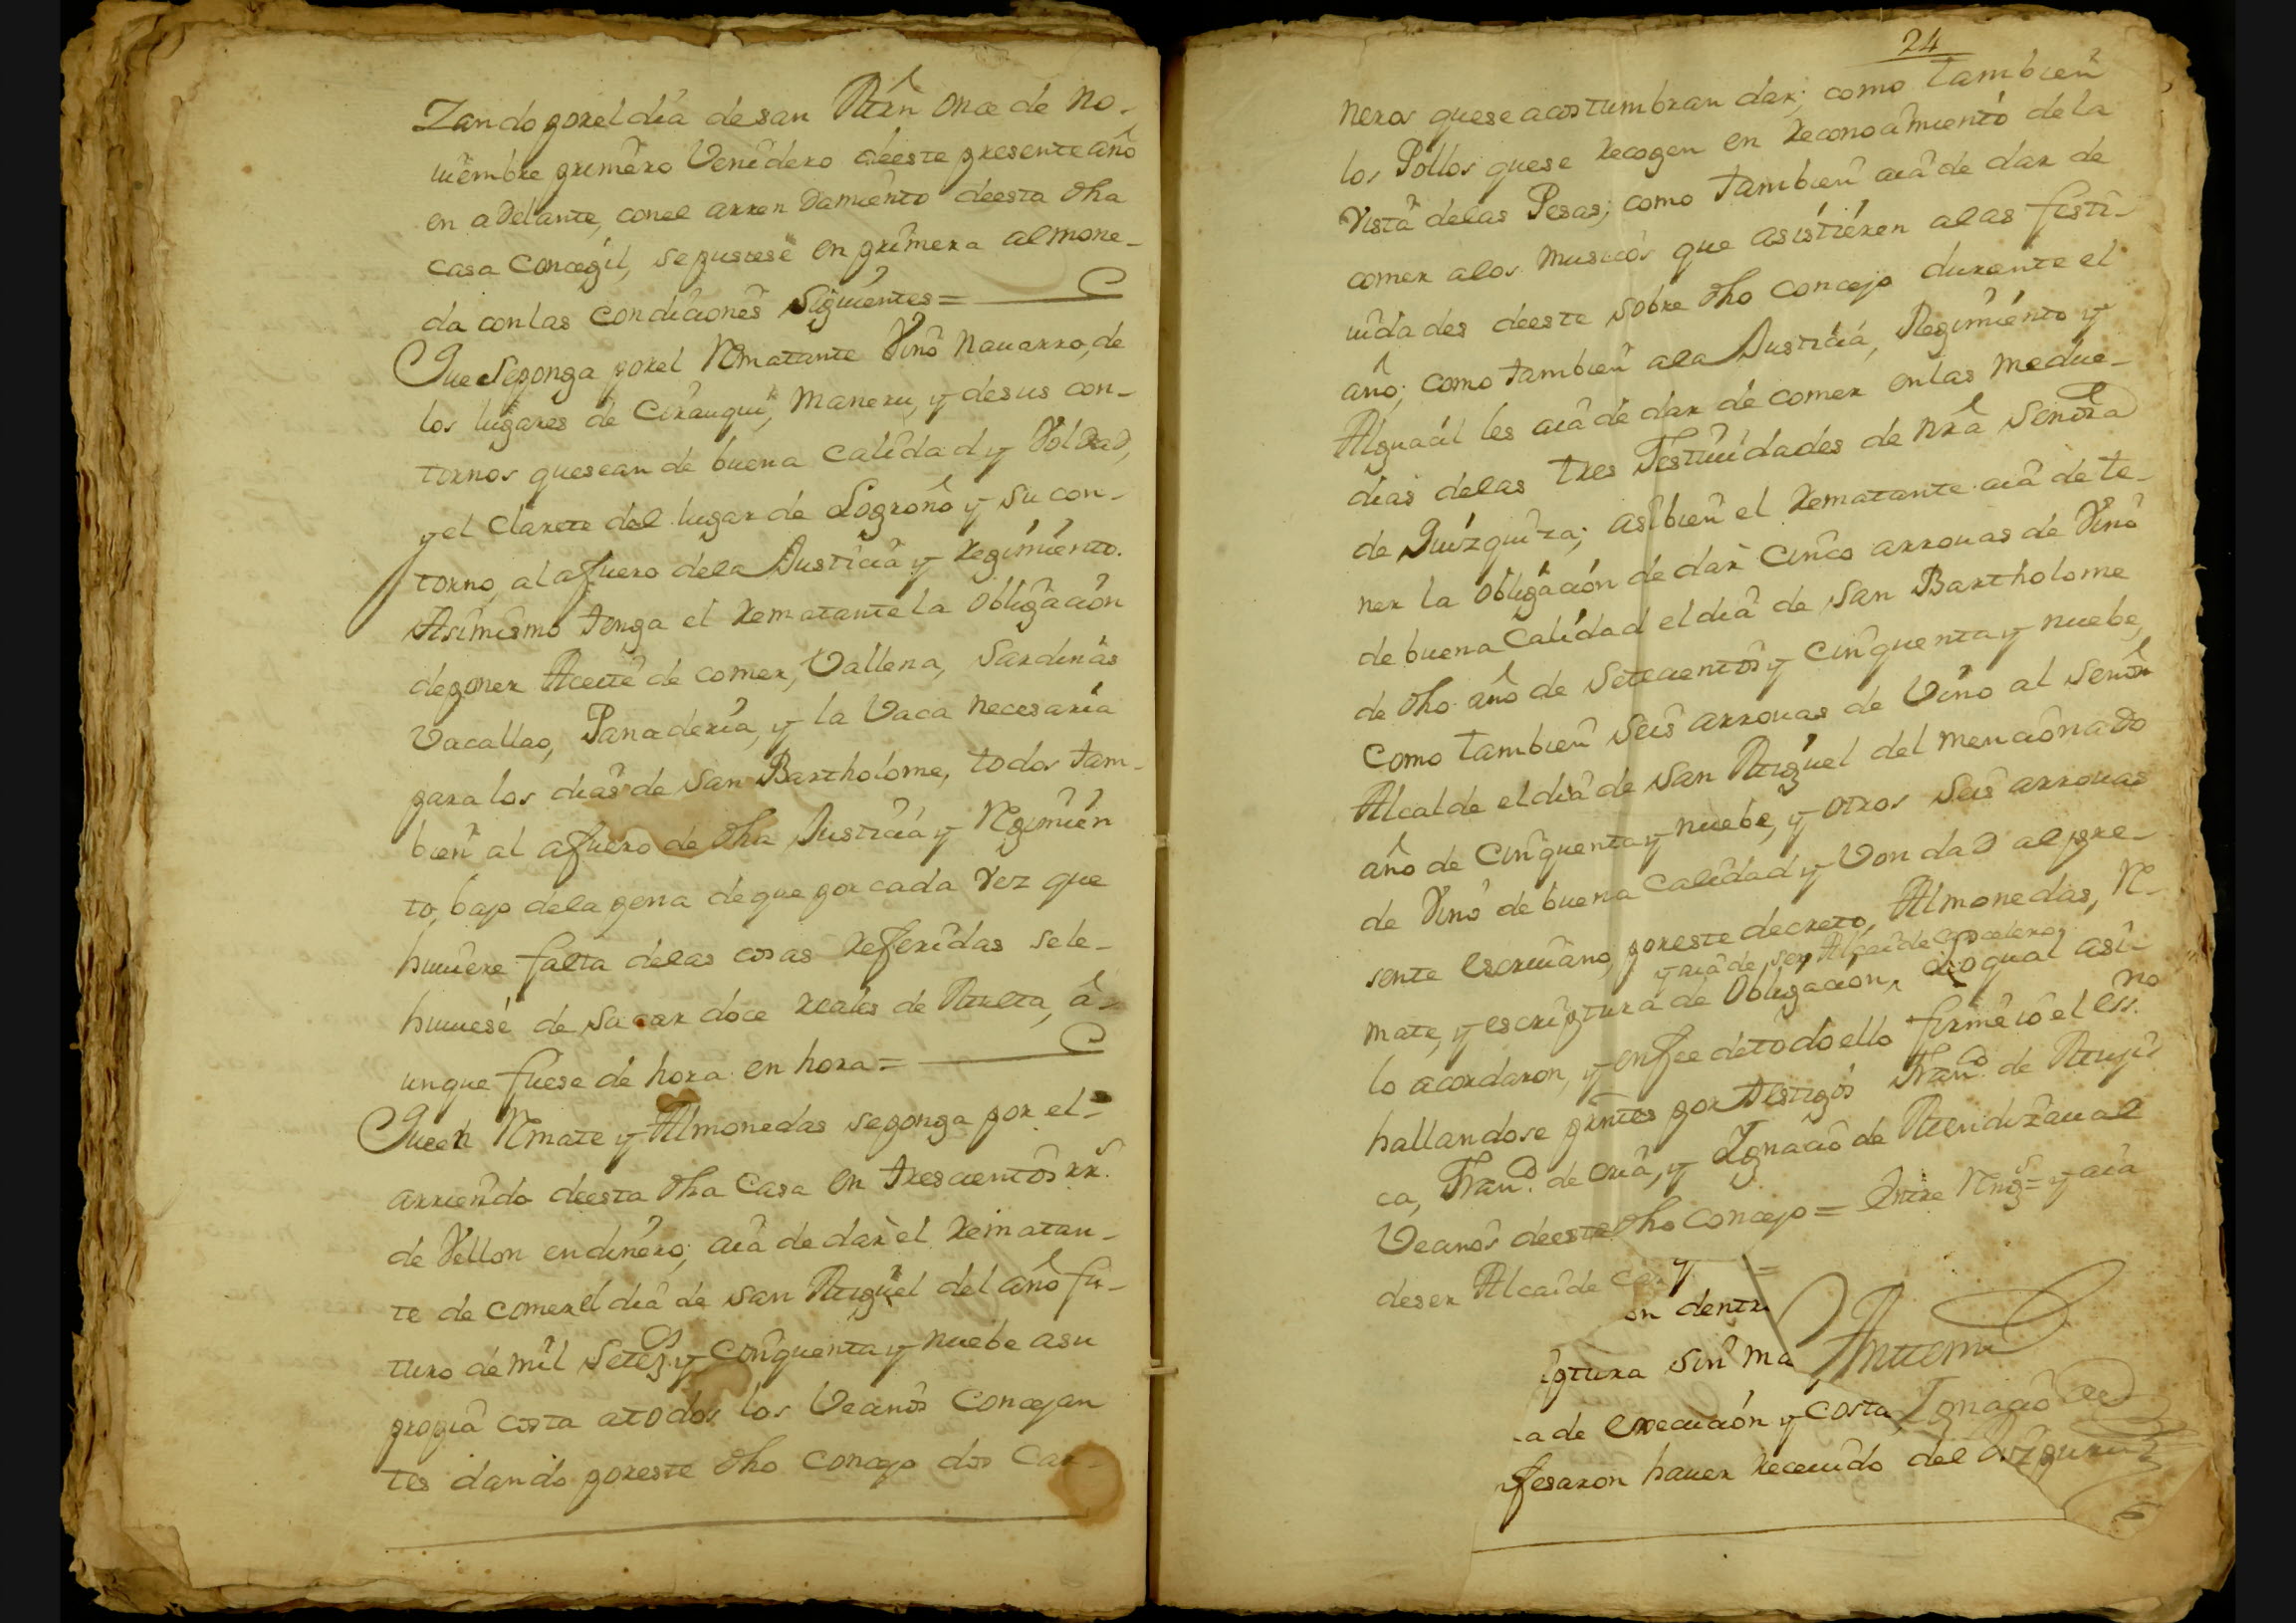 Zando por el dia de san Mrn once de No-
uiembre primero Venidero deeste presente año
en adelante, conel arren damiento deesta dha
casa Concegil, se pusiese en primera almone-
da con las condiciones siguientes =
Que se ponga por el Rematante Vino nauarro, de
los lugares de Cirauqui, Maneru, y de sus con-
tornos que sean de buena calidad y Voldad,
y el Clarete del lugar de Logroño y su con-
torno, al afuero dela Justicia y regimiento.
Asimismo tenga el rematante la obligacion
de poner Aceite de comer, Vallena, sardinas
Vacallao, Panaderia, y la Vaca necesaria
para los dias de san Bartholome, todos tam-
bien al afuero de dha Justicia y Regimien
to, bajo dela pena de que por cada vez que
huuiere falta delas cosas referidas sele-
huuiese de sacar doce reales de Multa, a-
unque fuese de hora en hora =
Que el Remate y Almonedas se ponga por el-
arriendo deesta dha Casa en trescientos rr.s
de Vellon en dinero; aia de dar el rematan-
te de comer el dia de san Miguel del año fu-
turo de mil setez.s y cinquenta y nuebe asu
propia costa atodos los Vecinos Concejan
tes dando por este dho concejo dos Car-
24
neros que se acostumbran dar; como tambien
los Pollos que se recogen en reconocimiento de la
vista delas Pesas; como tambien aia de dar de
comer alos musicos que asistieren alas festi-
uidades deeste sobre dho concejo durante el
año; como tambien ala Justicia, Regimiento y
Alguacil les aia de dar de comer en las medue-
dias delas tres Festiuidades de nra señora
de Guizquiza; asibien el rematante aia de te-
ner la obligacion de dar cinco arrouas de Vino
de buena Calidad el dia de san Bartholome
de dho año de setecientos y cinquenta y nuebe,
Como tambien seis arrouas de Vino al señor
Alcalde el dia de san Miguel del mencionado
año de cinquenta y nuebe, y otros seis arrouas
de Vino de buena calidad y Vondad al pre-
sente escriuano, por este decreto, Almonedas, R-
y aia de ser Alcaide carcelero
mate, y escriptura de obligacion, Lo qual asi-
lo acordaron, y en fee de todo ello firme io el ess.no
hallandose pntes por testigos Fran.co de Muji
ca, Fran.co de oria, y Ignacio de Mendizaual
Vecinos deeste dho Concejo = Entre Rengs = y aia
de ser Alcaide
on dentr
iptura sin ma
Ante mi
a de execucion y costa
Ignacio de
nfesaron hauer receuido del